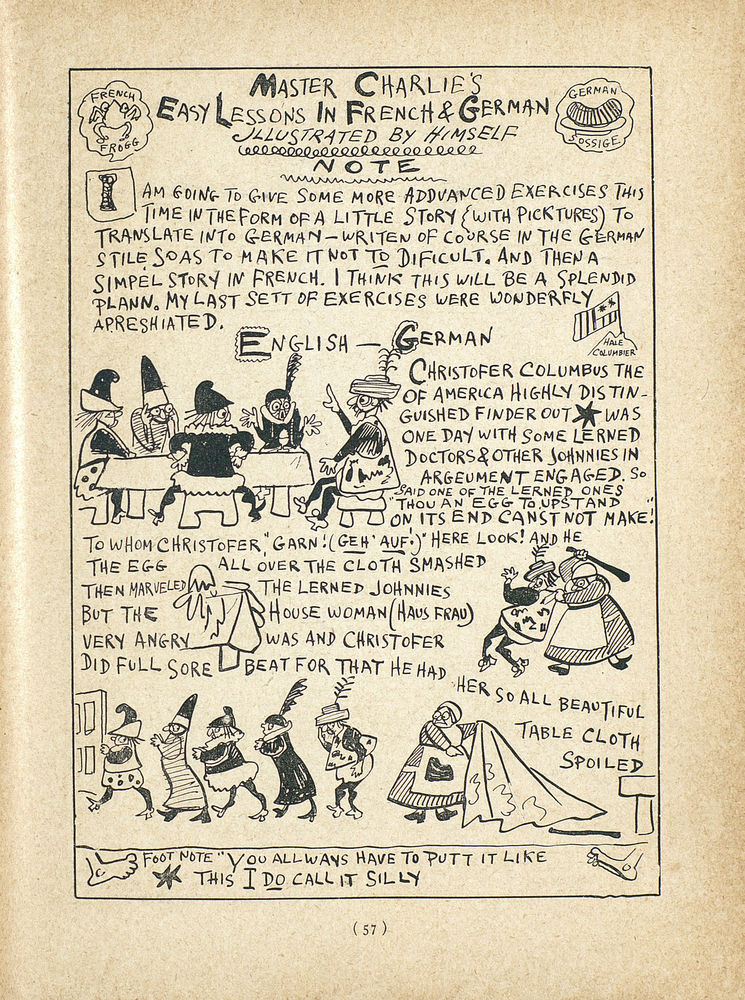 MASTER CHARLIE'S
FRENCH
FROGG
EASY LESSONS IN FRENCH & GERMAN
GERMAN
SOSSIGE
ILLUSTRATED BY HIMSELF
NOTE
I AM GOING TO GIVE SOME MORE ADDVANCED EXERCISES THIS
TIME IN THE FORM OF A LITTLE STORY (WITH PICKTURES) TO
TRANSLATE INTO GERMAN — WRITEN OF COURSE IN THE GERMAN
STILE SO AS TO MAKE IT NOT TO DIFICULT. AND THEN A
SIMPEL STORY IN FRENCH. I THINK THIS WILL BE A SPLENDID
PLANN. MY LAST SETT OF EXERCISES WERE WONDERFLY
APRESHIATED.
HALE
COLUMBIER
ENGLISH — GERMAN
CHRISTOFER COLUMBUS THE
OF AMERICA HIGHLY DISTIN-
GUISHED FINDER OUT ★ WAS
ONE DAY WITH SOME LERNED
DOCTORS & OTHER JOHNNIES IN
ARGEUMENT ENGAGED. SO
SAID ONE OF THE LERNED ONES
"THOU AN EGG TO UPSTAND
ON ITS END CANST NOT MAKE!"
TO WHOM CHRISTOFER, "GARN! (GEH' AUF!)" HERE LOOK! AND HE
THE EGG ALL OVER THE CLOTH SMASHED
THEN MARVELED THE LERNED JOHNNIES
BUT THE HOUSE WOMAN (HAUS FRAU)
VERY ANGRY WAS AND CHRISTOFER
DID FULL SORE BEAT FOR THAT HE HAD
HER SO ALL BEAUTIFUL
TABLE CLOTH
SPOILED
FOOT NOTE "YOU ALLWAYS HAVE TO PUTT IT LIKE
★ THIS I DO CALL IT SILLY
(57)